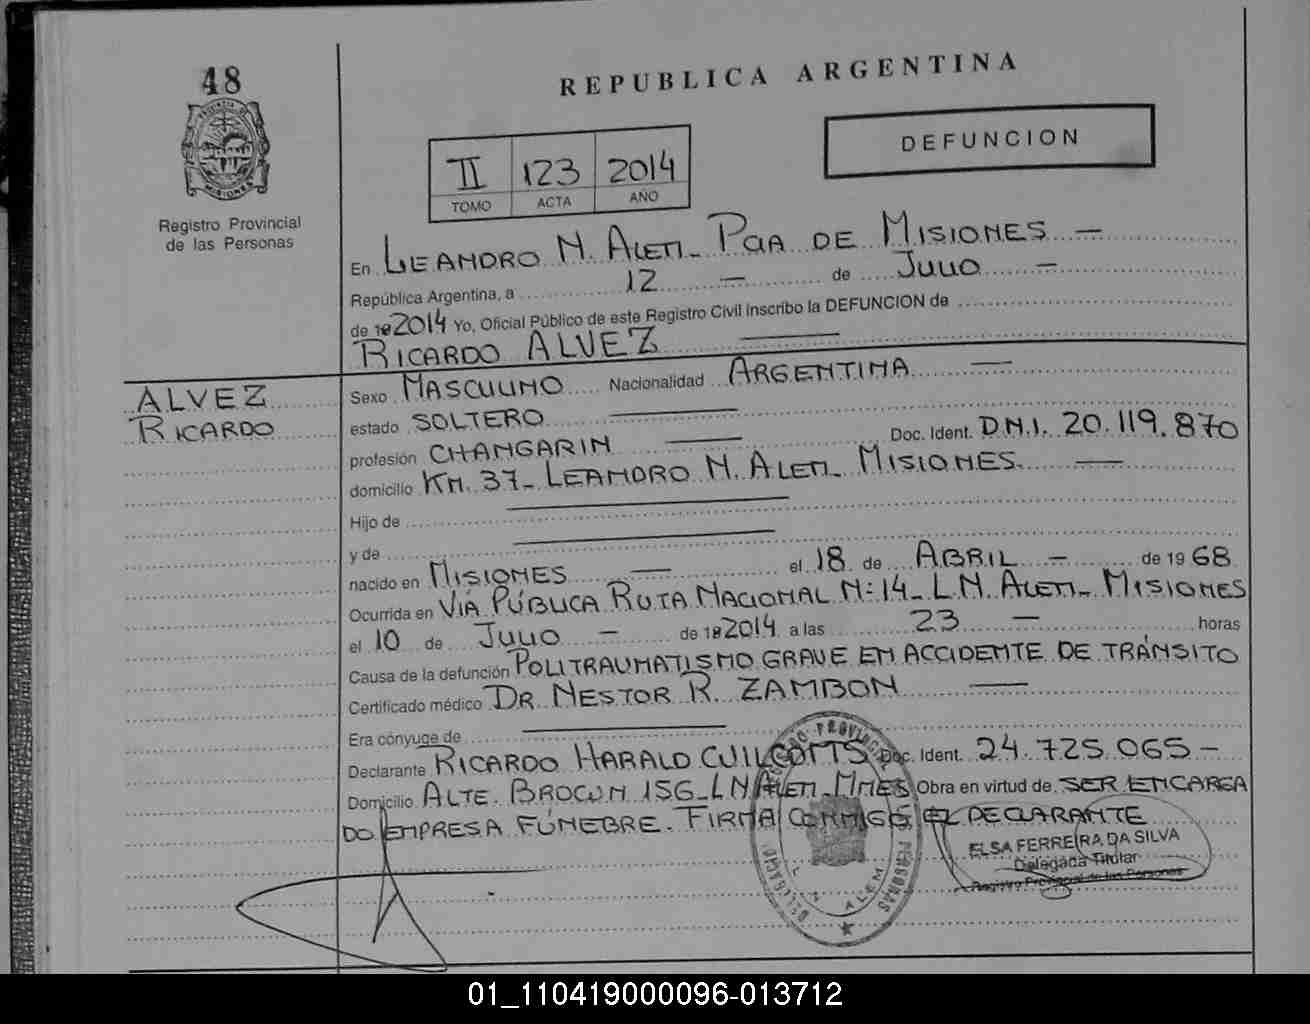 48
REPUBLICA ARGENTINA
DEFUNCION
II 123 2014
TOMO ACTA AÑO
Registro Provincial
de las Personas
En LEANDRO N. ALEM_ PCIA DE MISIONES —
República Argentina, a 12 — de JULIO —
de 19 2014 Yo, Oficial Público de este Registro Civil inscribo la DEFUNCION de
RICARDO ALVEZ
ALVEZ
RICARDO
Sexo MASCULINO Nacionalidad ARGENTINA —
estado SOLTERO
profesión CHANGARIN Doc. Ident. D.N.I. 20.119.870
domicilio Km. 37_ LEANDRO N. ALEM_ MISIONES. —
Hijo de
y de
nacido en MISIONES — el 18 de ABRIL — de 19 68
Ocurrida en VIA PÚBLICA RUTA NACIONAL N: 14_ L.N. ALEM_ MISIONES
el 10 de JULIO — de 19 2014 a las 23 — horas
Causa de la defunción POLITRAUMATISMO GRAVE EN ACCIDENTE DE TRÁNSITO
Certificado médico DR. NESTOR R. ZAMBON —
Era cónyuge de
Declarante RICARDO HARALD Doc. Ident. 24.725.065 –
Domicilio ALTE. BROWN 156_ L N ALEM_ MNES Obra en virtud de SER ENCARGA
DO EMPRESA FÚNEBRE. FIRMA CONMIGO EL DECLARANTE
ELSA FERREIRA DA SILVA
Delegada Titular
Registro Provincial de las Personas
L N ALEM
01_110419000096-013712